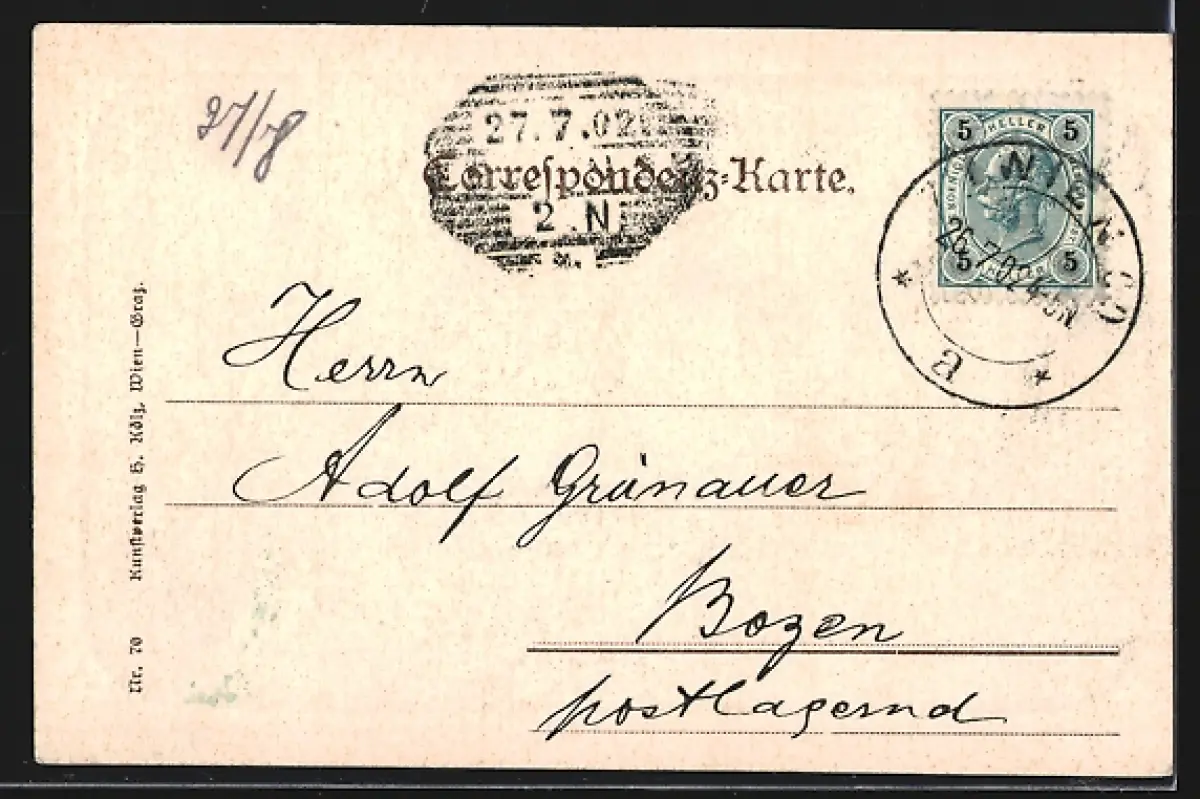 27/8
27.7.02
Correspondenz-Karte.
2.N
5 HELLER 5
5 5
WIEN
26.7.02
a
Herrn
Adolf Grünauer
Bozen
postlagernd
Nr. 70 Kunstverlag H. Kölz, Wien—Graz.